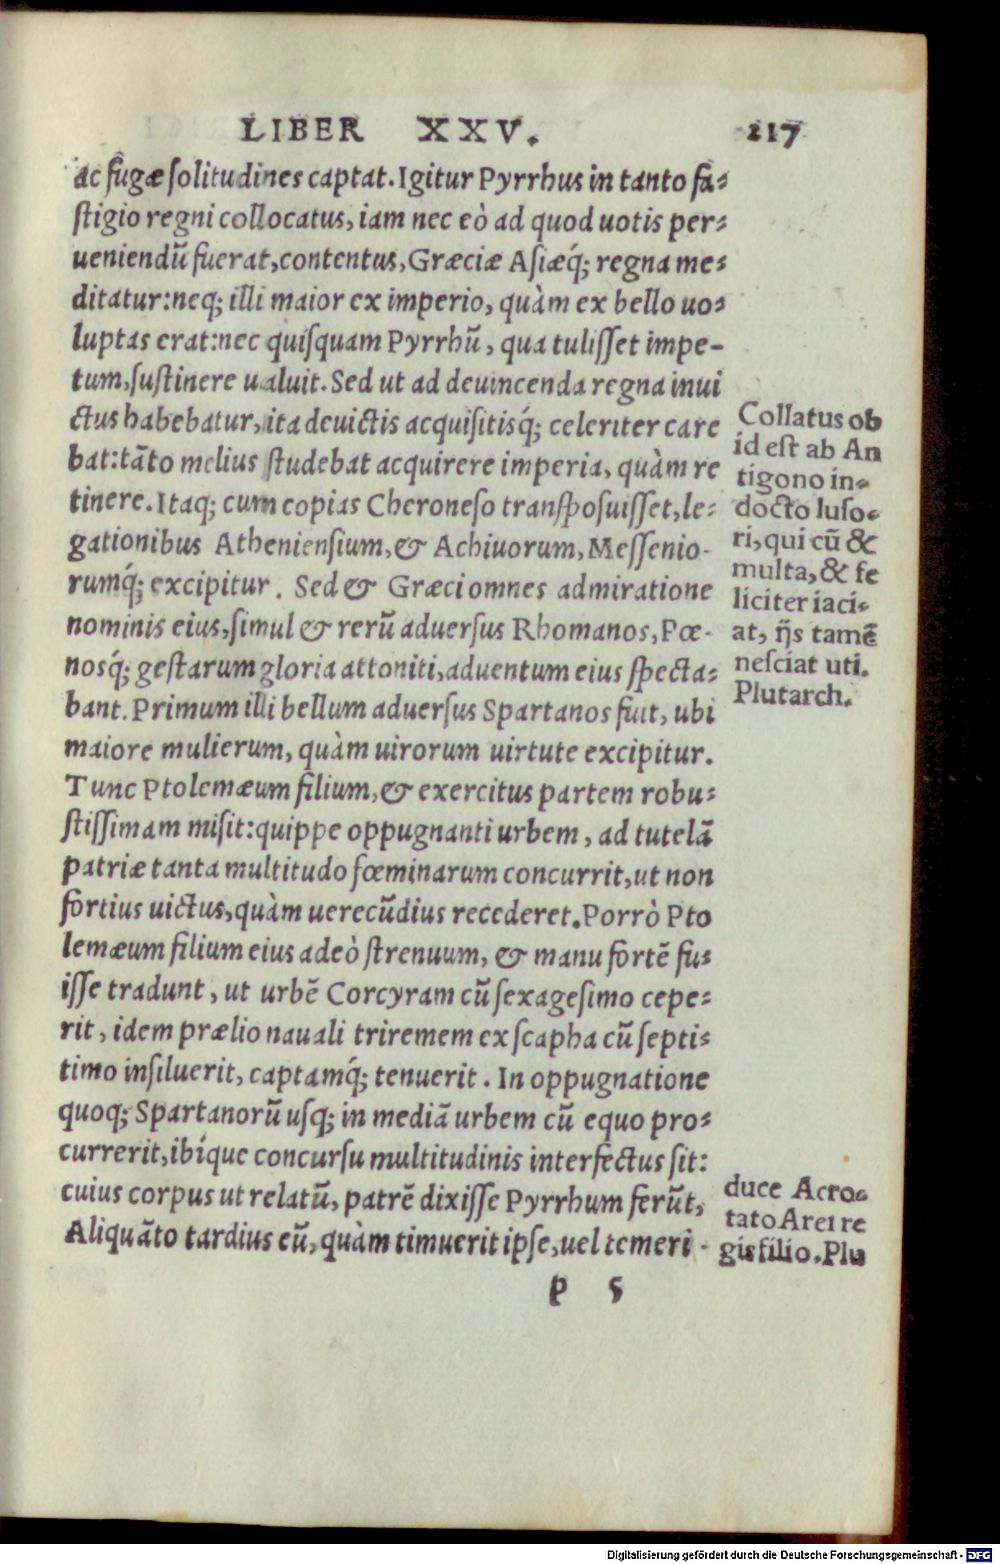 LIBER XXV. 217
ac fugæ ſolitudines captat. Igitur Pyrrhus in tanto fa-
ſtigio regni collocatus, iam nec eò ad quod uotis per-
ueniendũ fuerat, contentus, Græciæ Aſiæq́; regna me-
ditatur: neq; illi maior ex imperio, quàm ex bello uo-
luptas erat: nec quiſquam Pyrrhũ, qua tuliſſet impe-
tum, ſuſtinere ualuit. Sed ut ad deuincenda regna inui
ctus habebatur, ita deuictis acquiſitisq́; celeriter care
bat: tãto melius ſtudebat acquirere imperia, quàm re
tinere. Itaq; cum copias Cheroneſo tranſpoſuiſſet, le-
gationibus Athenienſium, & Achiuorum, Meſſenio-
rumq́; excipitur. Sed & Græci omnes admiratione
nominis eius, ſimul & rerũ aduerſus Rhomanos, Pœ-
nosq́; geſtarum gloria attoniti, aduentum eius ſpecta-
bant. Primum illi bellum aduerſus Spartanos fuit, ubi
maiore mulierum, quàm uirorum uirtute excipitur.
Tunc Ptolemæum filium, & exercitus partem robu-
ſtiſſimam miſit: quippe oppugnanti urbem, ad tutelã
patriæ tanta multitudo fœminarum concurrit, ut non
fortius uictus, quàm uerecũdius recederet. Porrò Pto
lemæum filium eius adeò ſtrenuum, & manu fortẽ fu-
iſſe tradunt, ut urbẽ Corcyram cũ ſexageſimo cepe-
rit, idem prælio nauali triremem ex ſcapha cũ ſepti-
timo inſiluerit, captamq́; tenuerit. In oppugnatione
quoq; Spartanorũ uſq; in mediã urbem cũ equo pro-
currerit, ibíque concurſu multitudinis interfectus ſit:
cuius corpus ut relatũ, patrẽ dixiſſe Pyrrhum ferũt,
Aliquãto tardius eũ, quàm timuerit ipſe, uel temeri-
p 5
Collatus ob
id eſt ab An
tigono in-
docto luſo-
ri, qui cũ &
multa, & fe
liciter iaci-
at, ijs tamẽ
neſciat uti.
Plutarch.
duce Acro-
tato Arei re
gis filio. Plu
Digitalisierung gefördert durch die Deutsche Forschungsgemeinschaft - DFG